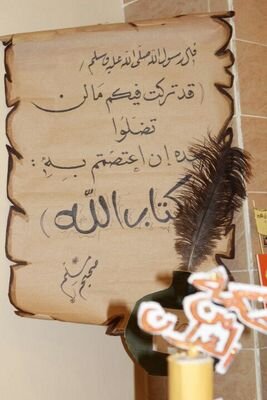 قال رسول الله صلى الله عليه وسلم /
( قد تركت فيكم ما لن
تضلوا
بعده إن إعتصمتم بهِ :
كتاب الله )
صحيح مسلم